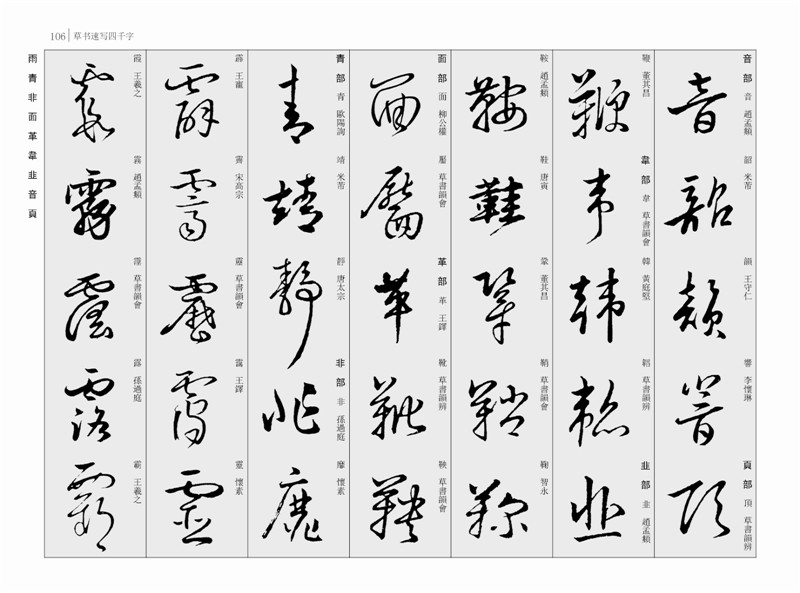 106 草书速写四千字
雨 青 非 面 革 韋 韭 音 頁
霞 王羲之
霧 趙孟頫
草書韻會
露 孫過庭
霸 王羲之
霹 王寵
霽 宋高宗
靂 草書韻會
靄 王鐸
靈 懷素
青部 青 歐陽詢
靖 米芾
靜 唐太宗
非部 非 孫過庭
靡 懷素
面部 面 柳公權
靨 草書韻會
革部 革 王鐸
靴 草書韻辨
鞅 草書韻會
鞍 趙孟頫
鞋 唐寅
鞏 董其昌
鞘 草書韻會
鞠 智永
鞭 董其昌
韋部 韋 草書韻會
韓 黃庭堅
韜 草書韻辨
韭部 韭 趙孟頫
音部 音 趙孟頫
韶 米芾
韻 王守仁
響 李懷琳
頁部 頂 草書韻辨